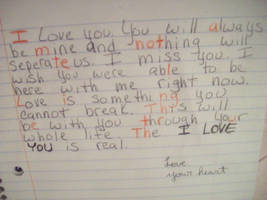 I Love you. You will always
be mine and nothing will
seperate us. I miss you. I
wish you were able to be
here with me right now.
Love is something you
cannot break. This will
be with you through your
whole life. The I LOVE
YOU is real.
Love
your heart